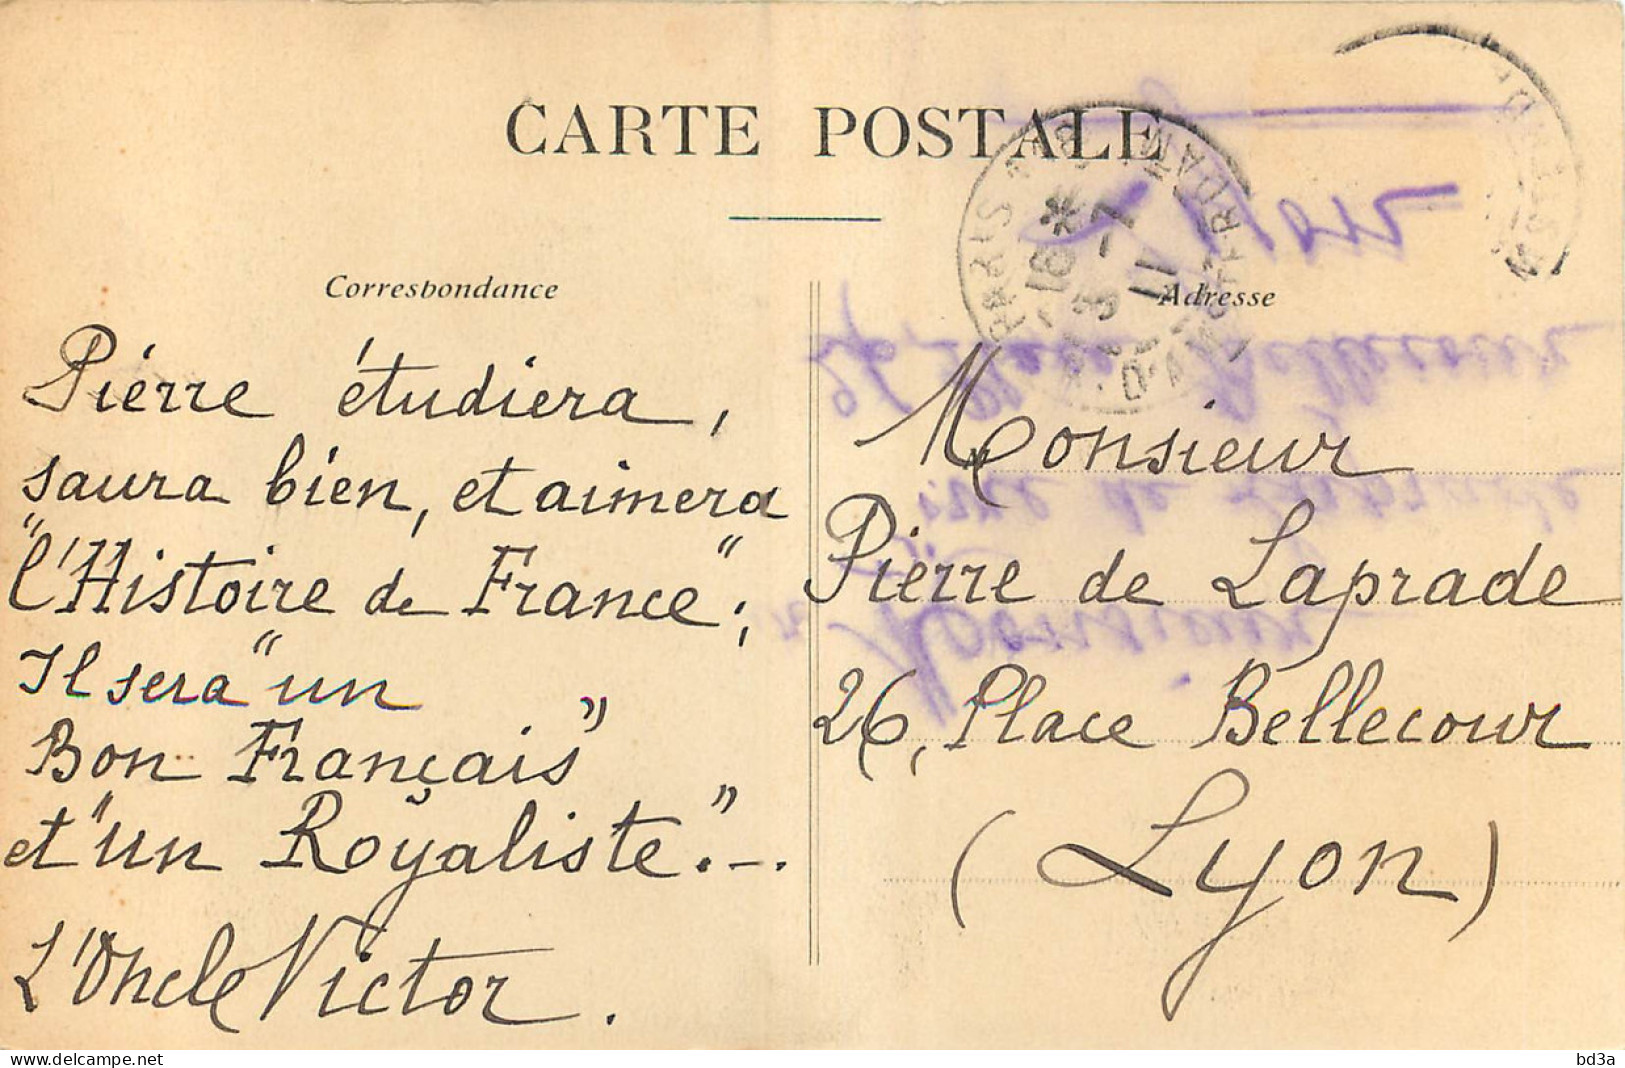 CARTE POSTALE
Correspondance
Pierre étudiera,
saura bien, et aimera
"l'Histoire de France";
Il sera "un
Bon Français"
et "un Royaliste".-.
L'Oncle Victor.
Adresse
Monsieur
Pierre de Laprade
26, Place Bellecour
(Lyon)
PARIS
18
3 - 7
11
delcampe.net
bd3a